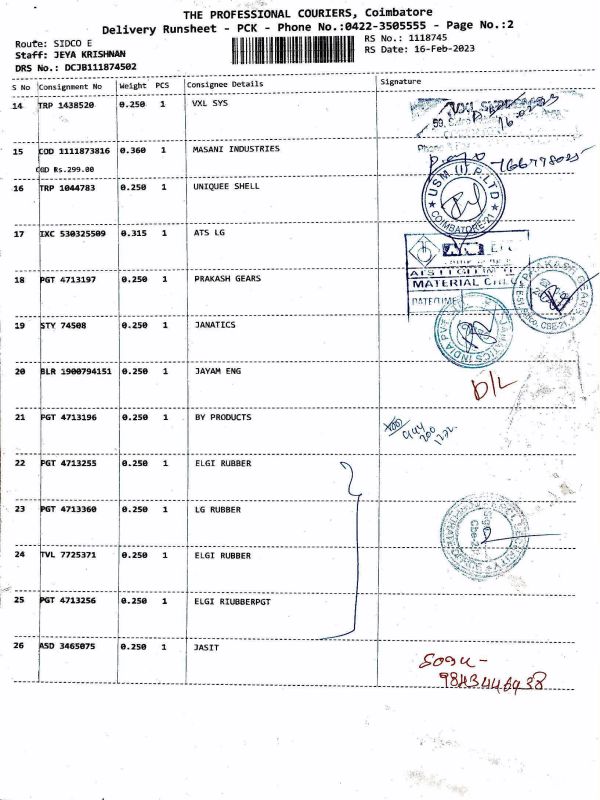 THE PROFESSIONAL COURIERS, Coimbatore
Delivery Runsheet - PCK - Phone No.:0422-3505555 - Page No.:2
Route: SIDCO E
RS No.: 1118745
Staff: JEYA KRISHNAN
RS Date: 16-Feb-2023
DRS No.: DCJB111874502
S No Consignment No Weight PCS Consignee Details Signature
14 TRP 1438520 0.250 1 VXL SYS
15 COD 1111873816 0.360 1 MASANI INDUSTRIES
COD Rs.299.00
16 TRP 1044783 0.250 1 UNIQUEE SHELL
USM (I) P. LTD
COIMBATORE-21
17 IXC 530325509 0.315 1 ATS LG
MATERIAL
DATE/TIME
18 PGT 4713197 0.250 1 PRAKASH GEARS
PRAKASH GEARS
CBE-21
19 STY 74508 0.250 1 JANATICS
JANATICS INDIA PVT
20 BLR 1900794151 0.250 1 JAYAM ENG
D/L
21 PGT 4713196 0.250 1 BY PRODUCTS
22 PGT 4713255 0.250 1 ELGI RUBBER
23 PGT 4713360 0.250 1 LG RUBBER
24 TVL 7725371 0.250 1 ELGI RUBBER
25 PGT 4713256 0.250 1 ELGI RIUBBERPGT
26 ASD 3465075 0.250 1 JASIT